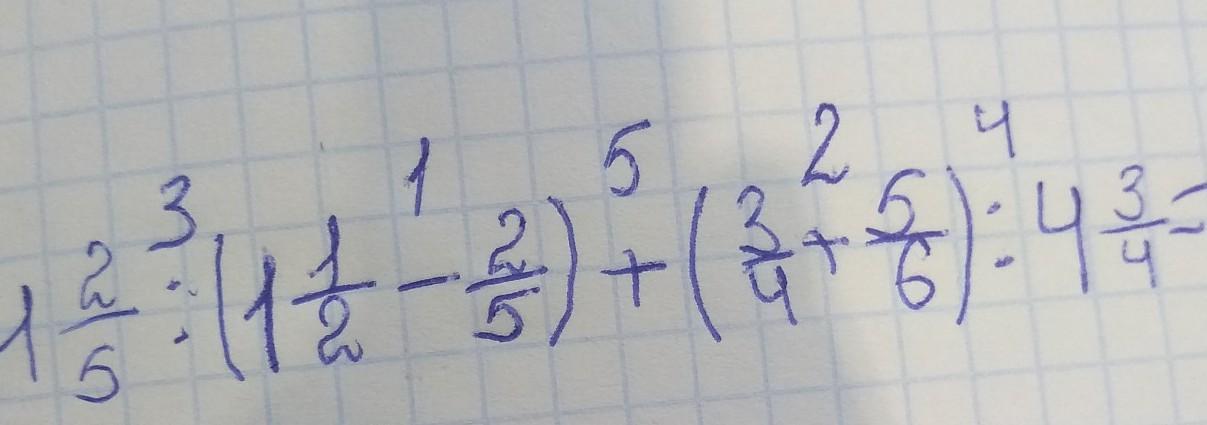 3 1 5 2 4
1 2/5 : (1 1/2 - 2/5) + (3/4 + 5/6) : 4 3/4 =